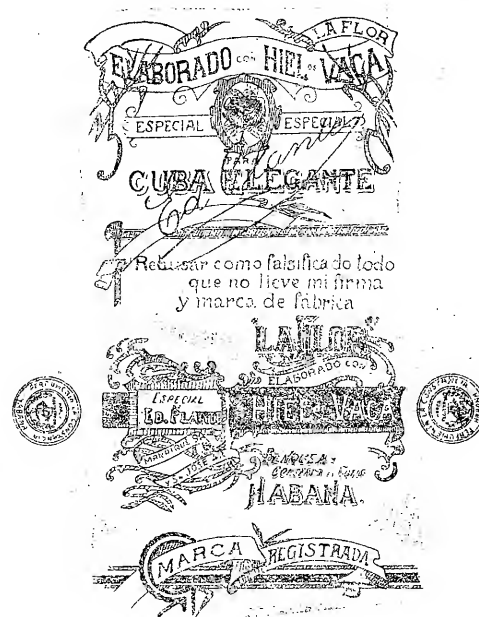 LA FLOR
ELABORADO CON HIEL DE VACA
ESPECIAL ESPECIAL
PARA
CUBA ELEGANTE
Ed. Planté
Rehusar como falsificado todo
que no lleve mi firma
y marca de fábrica
"LA FLOR"
ELABORADO CON
HIEL DE VACA
ESPECIAL
ED. PLANTÉ
HABANA.
MARCA REGISTRADA